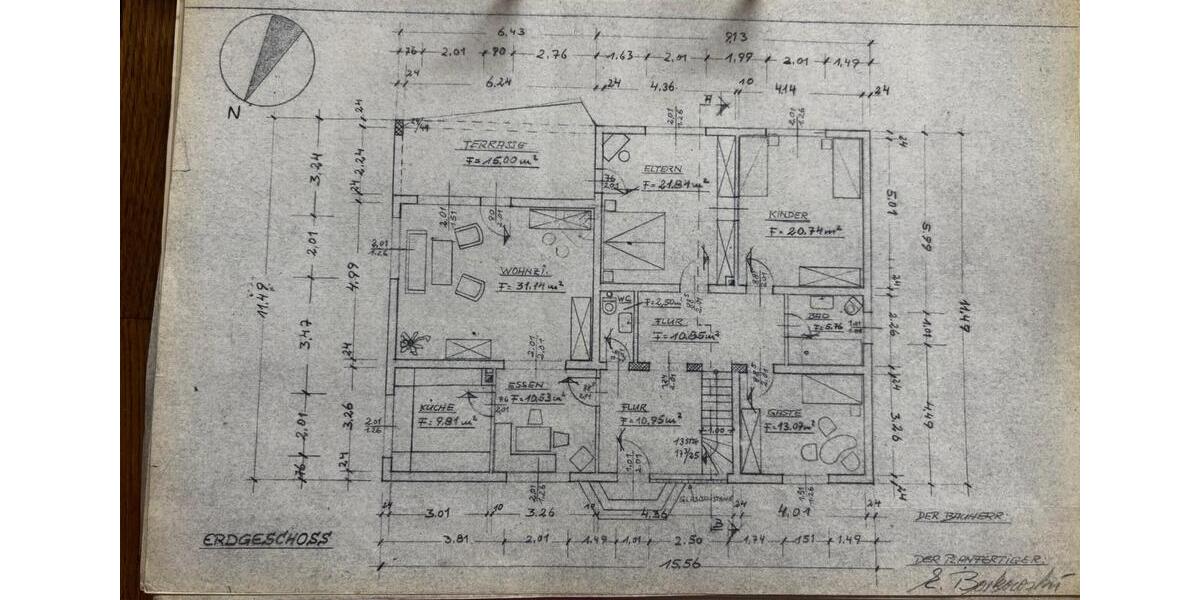 6.43
9.13
76 2.01 90 2.76 1.63 2.01 1.99 2.01 1.49
24 6.24 24 4.36 10 4.14 24
N
A
TERRASSE
F = 15.00 m²
ELTERN
F = 21.84 m²
KINDER
F = 20.74 m²
WOHNZI.
F = 31.14 m²
WC
F = 2,50 m²
FLUR
F = 10.85 m²
BAD
F = 5.76
KÜCHE
F = 9.81 m²
ESSEN
F = 10.63 m²
FLUR
F = 10.95 m²
GÄSTE
F = 13.07 m²
13 STG
17³/25
1.00
GLASBAUSTEINE
B
11.49
24 3.24 2.01 3.47 2.01 76
24 2.24 24 4.99 24 3.26 24
24 5.01 24 2.26 24 3.26 24
5.99 1.01 4.49
11.49
24 3.01 10 3.26 10 4.36 24 4.01 24
3.81 2.01 1.49 1.01 2.50 1.74 1.51 1.49
15.56
ERDGESCHOSS
DER BAUHERR:
DER PLANFERTIGER: